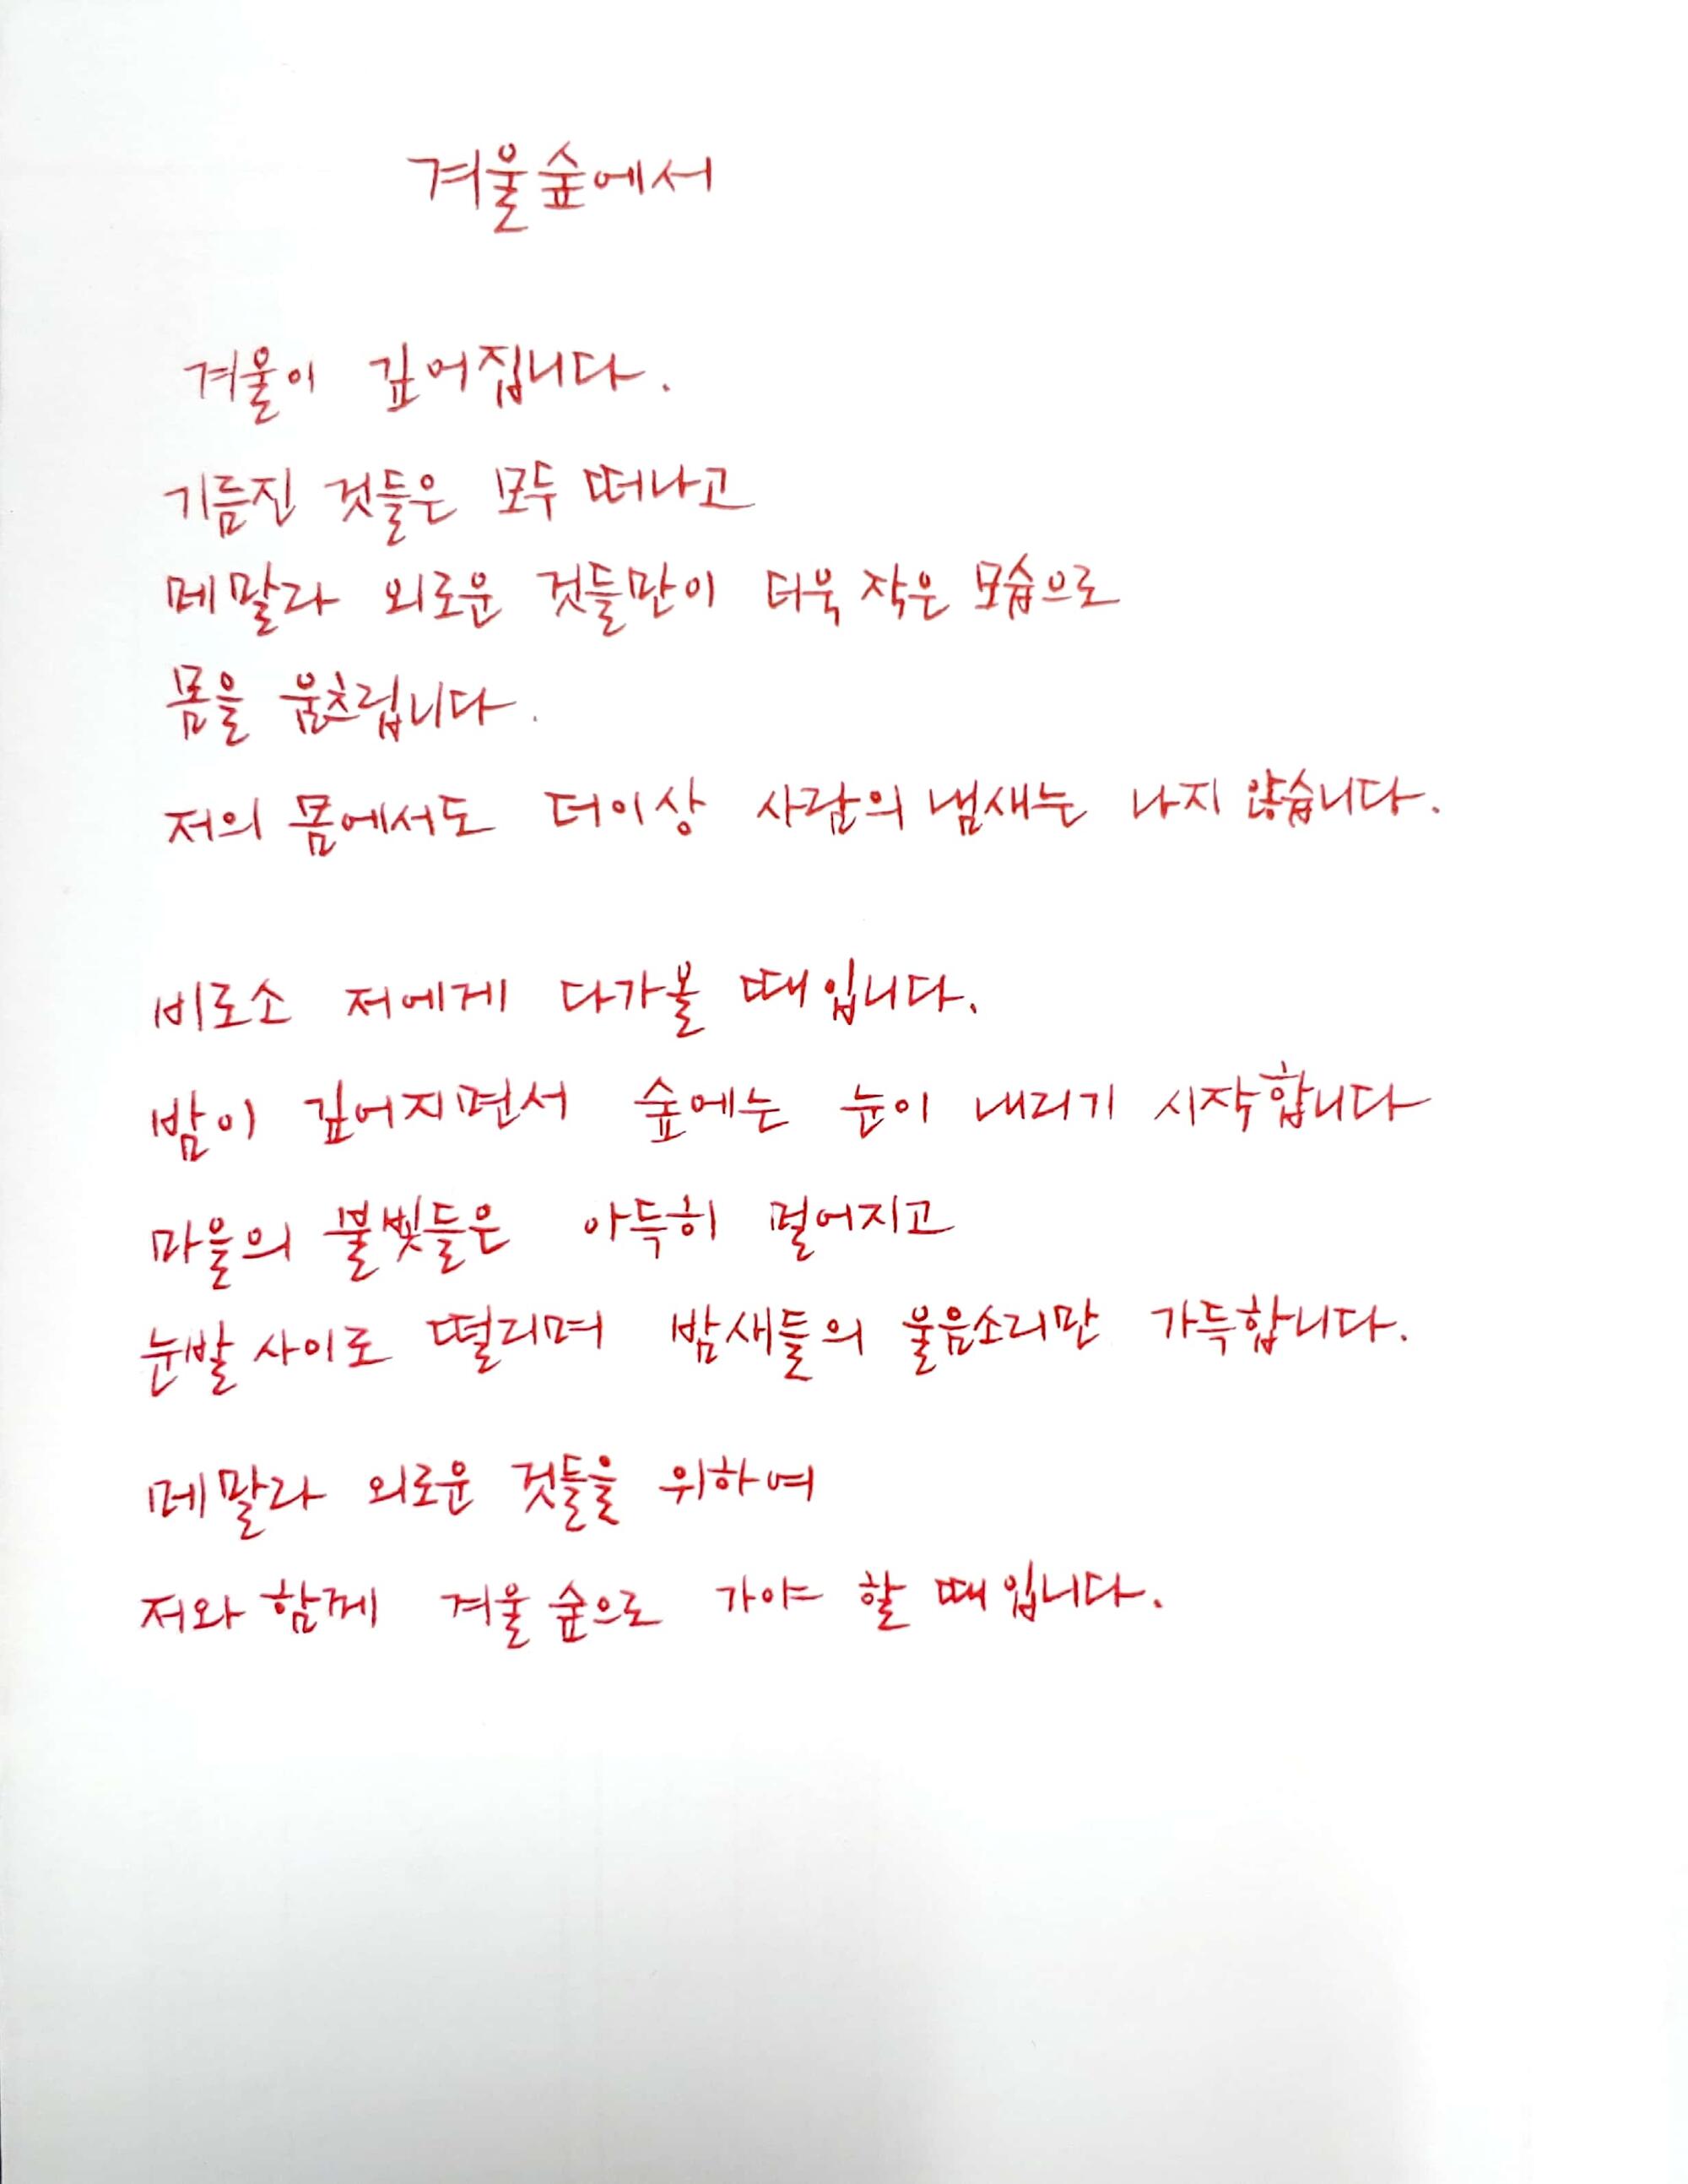 겨울숲에서
겨울이 깊어집니다.
기름진 것들은 모두 떠나고
메말라 외로운 것들만이 더욱 작은 모습으로
몸을 움츠립니다.
저의 몸에서도 더이상 사람의 냄새는 나지 않습니다.
비로소 저에게 다가올 때입니다.
밤이 깊어지면서 숲에는 눈이 내리기 시작합니다
마을의 불빛들은 아득히 멀어지고
눈발 사이로 떨리며 밤새들의 울음소리만 가득합니다.
메말라 외로운 것들을 위하여
저와 함께 겨울 숲으로 가야 할 때입니다.